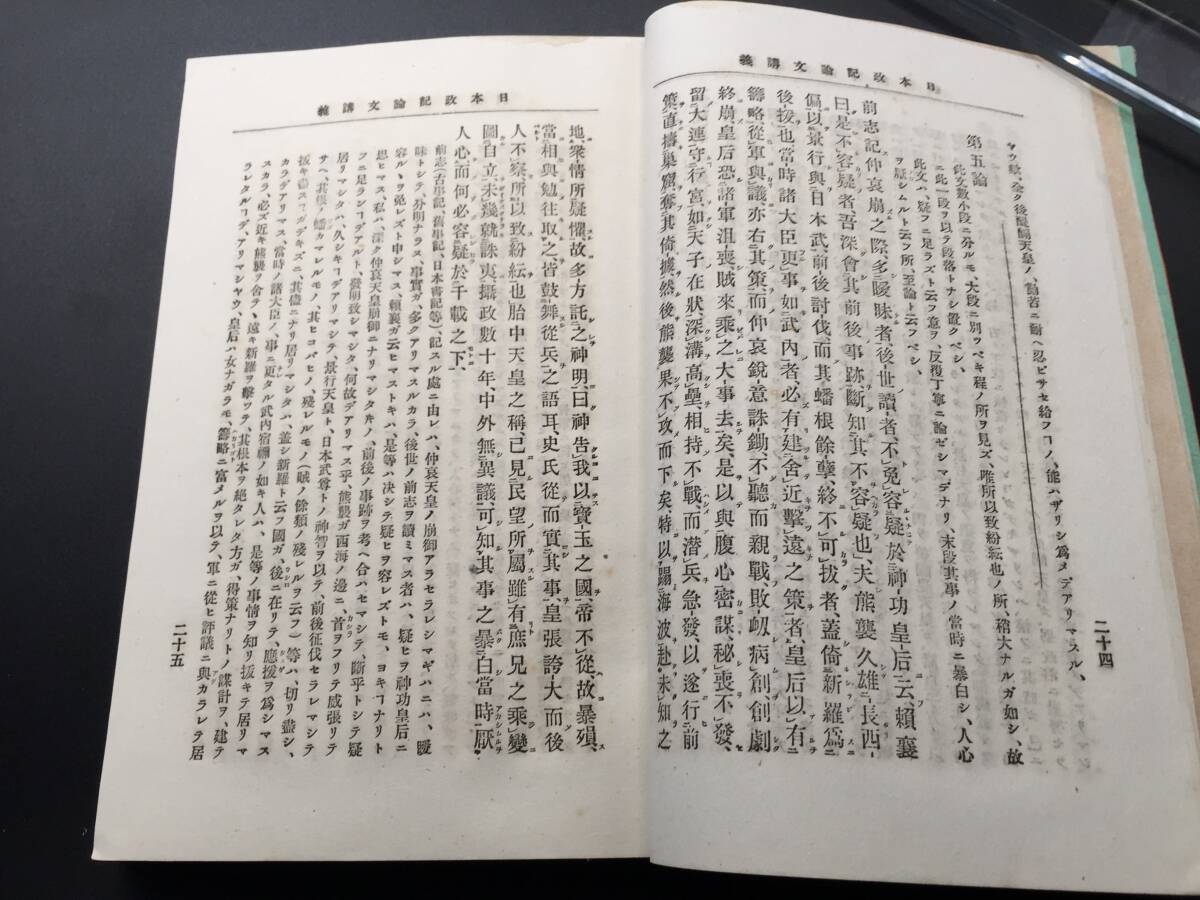 日本政記論文講義
二十四
ヤウ數、全ク後醍醐天皇ノ、勸若ニ耐ヘ忍ビサセ給フヿノ、能ハザリシ爲メデアリマスル、
第五論
此文數小段ニ分ルモ、大段ニ別ツベキ程ノ所ヲ見ズ、唯所以致紛紜也ノ所、稍大ナルガ如シ、故
ニ此一段ヲ以テ段落トナシ置クベシ、
此文ハ、疑フニ足ラズト云フ意ヲ、反覆丁寧ニ論ゼシマデナリ、末段其事ノ當時ニ暴白シ、人心
ヲ疑シムルト云フ所、至論ト云フベシ、
前志記仲哀崩之際、多曖昧者、後世讀者、不免容疑於神功皇后云、賴襄
曰、是不容疑者、吾深會其前後事跡、斷知其不容疑也、夫熊襲久雄長西
偏、以景行與日本武、前後討伐、而其蟠根餘孽、終不可拔者、蓋倚新羅爲
後援也、當時諸大臣更事如武內者、必有建舍近擊遠之策者、皇后以有
籌略、從軍與議、亦右其策、而仲哀銳意誅鋤、不聽而親戰、敗衂病創、創劇
終崩、皇后恐諸軍沮喪賊來乘之大事去矣、是以與腹心密謀、秘喪不發、
留大連守行宮、如天子在狀、深溝高壘、相持不戰、而潛兵急發、以遂行前
策、直擣巢窟、奪其倚據、然後熊襲果不攻而下矣、特以踰海波赴未知之
日本政記論文講義
地、衆情所疑懼、故多方託之神明、曰神告我以寶玉之國、帝不從、故暴殞、
當相與勉往取之、皆鼓舞從兵之語耳、史氏從而實其事、皇張誇大、而後
人不察、所以致紛紜也、胎中天皇之稱、已見民望所屬、雖有庶兄之乘變
圖自立、未幾就誅夷、攝政數十年、中外無異議、可知其事之暴白當時、厭
人心、而何必容疑於千載之下、
前志(古事記、舊事記、日本書記等)、記スル處ニ由レハ、仲哀天皇ノ崩御アセラレシマギハニハ、曖
味トシテ、分明ナラス、事實ガ、多クアリマスルカラ、後世ノ前志ヲ讀ミマス者ハ、疑ヒヲ神功皇后ニ
容ルヽヲ免レズト申シマス、賴襄ガ云ヒマストキハ、是等ハ决シテ疑ヒヲ容レズトモ、ヨキヿナリト
思ヒマス、私ハ、深ク仲哀天皇崩御ニナリマシタ𪜈ノ、前後ノ事跡ヲ考ヘ合ハセマシテ、斷乎トシテ疑
フニ足ランヿデアルト、發明致シマシタ、何故デアリマス乎、熊襲ガ西海ノ邊ニ、首ヲフリテ威張リテ
居リマシタハ、久シキヿデアリマシテ、景行天皇ト、日本武尊トノ神智ヲ以テ、前後征伐セラレマシテ
サヘ、其根ノ蟠カマレルモノ、其ヒコバヒノ、殘レルモノ(賊ノ餘類ノ殘レルヲ云フ)等ハ、切リ盡シ、
拔キ盡スヿガデキズニ、其儘ニナリ居リマシタハ、蓋シ新羅ト云フ國ガ、後ニ在リテ、應援ヲ爲シマス
カラデアリマス、當時ノ諸大臣ノ、事ニ更タル武內宿禰ノ如キ人ハ、是等ノ事情ヲ知リ拔キテ居リマ
スカラ、必ズ近キ熊襲ヲ舍テヽ、遠キ新羅ヲ擊ツテ、其根本ヲ絕タレタ方ガ、得策ナリトノ謀計ヲ、建テ
ラレタルヿデ、アリマシヤウ、皇后ハ女ナガラモ、籌略ニ富メルヲ以テ、軍ニ從ヒ評議ニ與カラレテ居
二十五